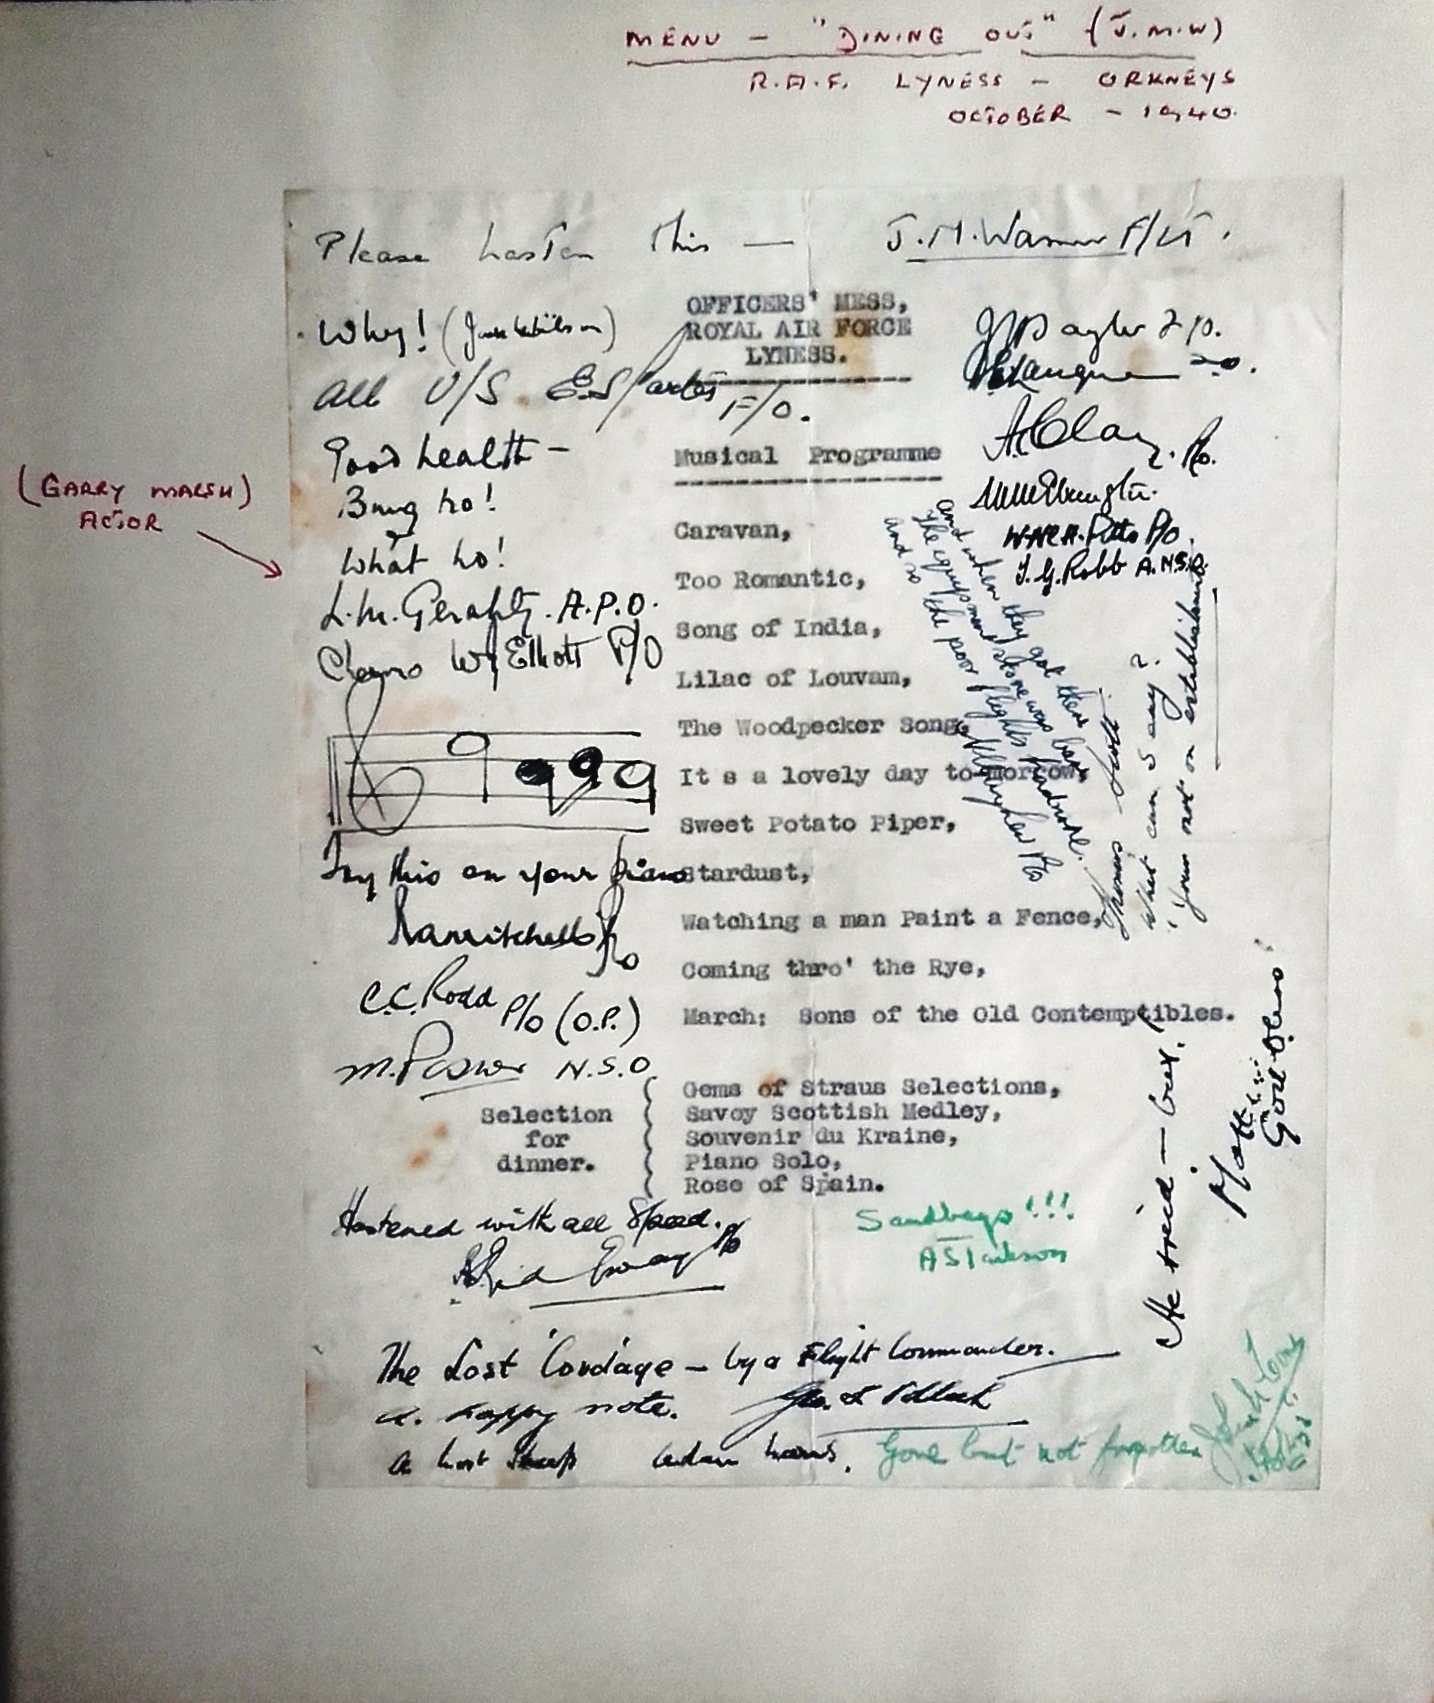 MENU – "DINING OUT" (J.M.W)
R.A.F. LYNESS – ORKNEYS
OCTOBER – 1940.
Please hasten this — J.M. Warner F/LT.
OFFICERS' MESS,
ROYAL AIR FORCE
LYNESS.
Why! (Jack Wilson)
All U/S E.S. F/O.
Good health –
Bung ho!
What ho!
(GARRY MARSH)
ACTOR
L.M. Geraghty. A.P.O.
Cheerio W Elliott P/O
Try this on your piano
P/O
C.C. Rodd P/O (O.P.)
M. N.S.O.
Musical Programme
Caravan,
Too Romantic,
Song of India,
Lilac of Louvam,
The Woodpecker Song,
It s a lovely day to-morrow,
Sweet Potato Piper,
Stardust,
Watching a man Paint a Fence,
Coming thro' the Rye,
March: Sons of the Old Contemptibles.
Selection
for
dinner.
Gems of Straus Selections,
Savoy Scottish Medley,
Souvenir du Kraine,
Piano Solo,
Rose of Spain.
A Clay. P/O.
W.N.R.H. Pitts P/O.
J.G. Robb A.N.S.O.
and when they got there
the equipment store was bare
and so the poor flights hadnone.
What can I say?
Your not on establishment
He tried – but!
Hastened with all Speed.
P/O
Sandbags!!!
A S Jackson
The Lost 'Cordage – by a Flight Commander.
a happy note.
Geo.
Gone but not forgotten